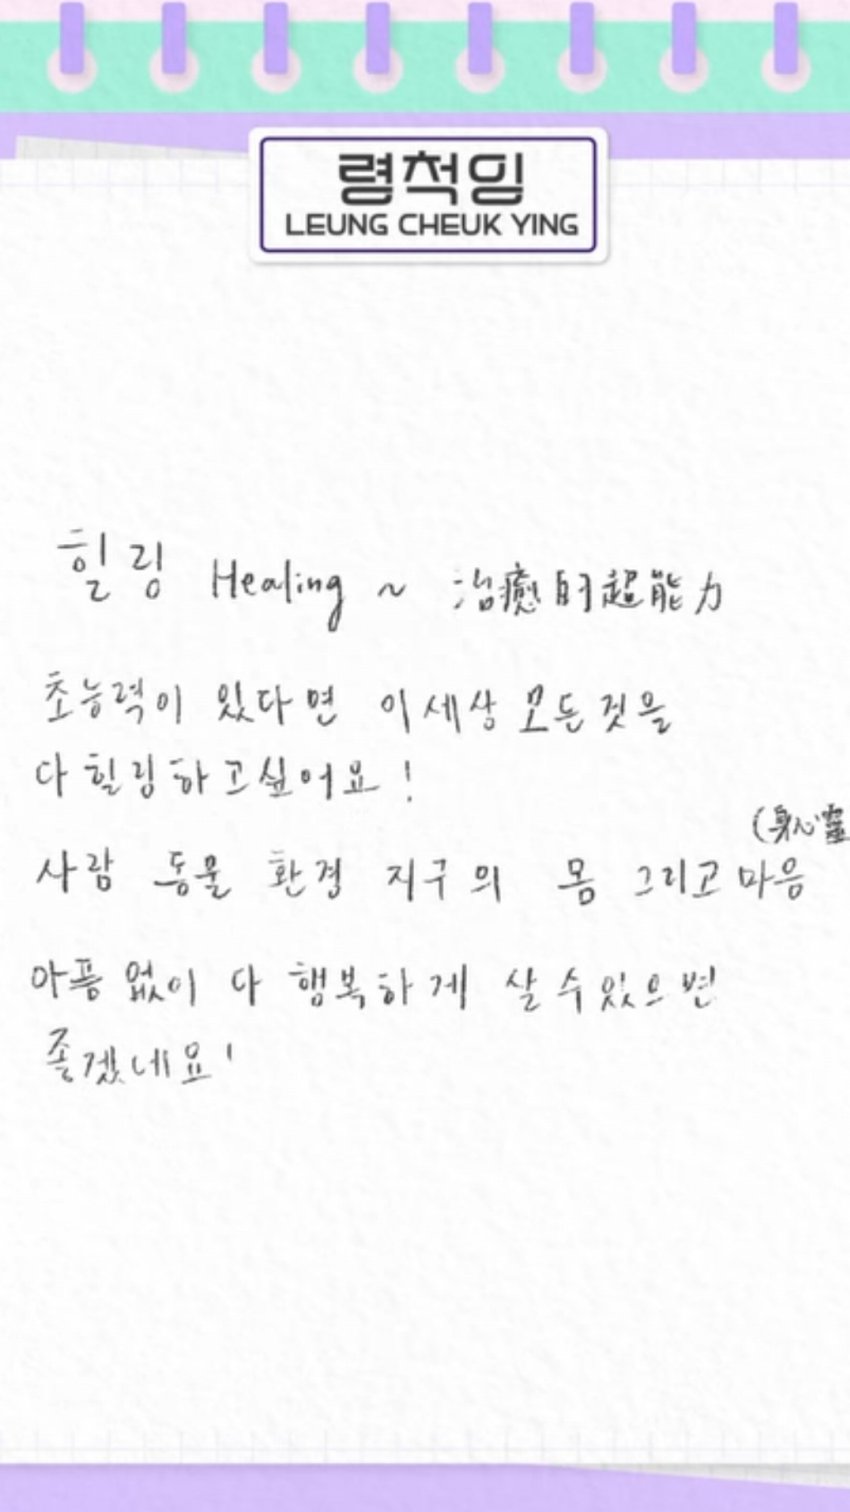 령척잉
LEUNG CHEUK YING
힐링 Healing ~ 治癒的超能力
초능력이 있다면 이 세상 모든것을
다 힐링하고싶어요!
(身心靈
사람 동물 환경 지구의 몸 그리고 마음
아픔 없이 다 행복하게 살 수 있으면
좋겠네요!